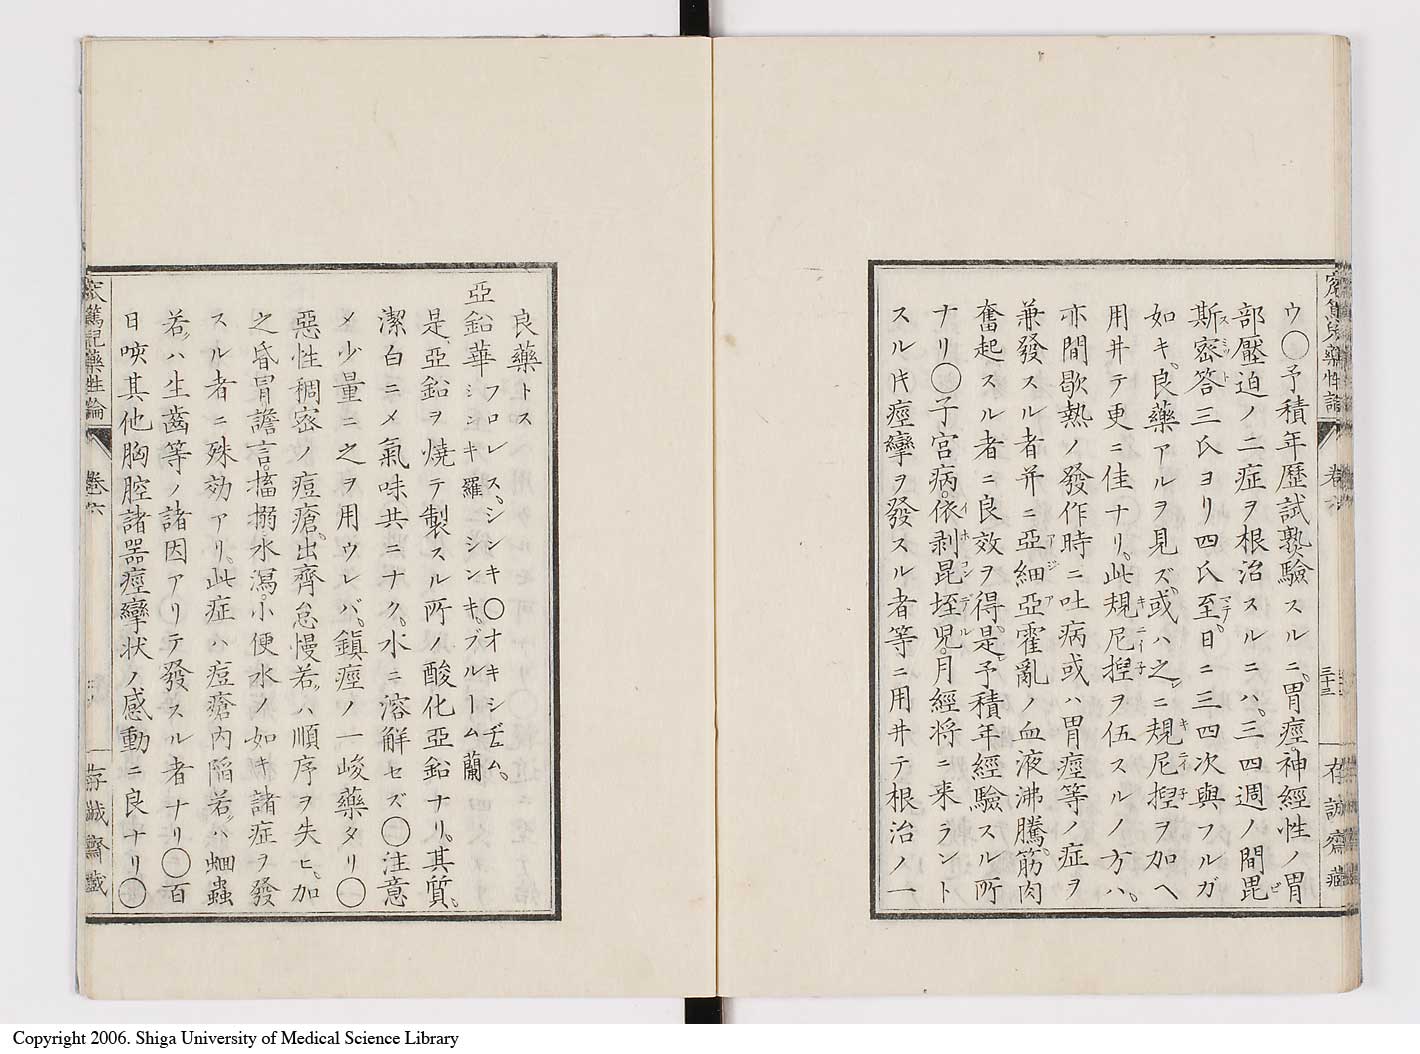 ウ〇予積年歴試熟驗スルニ、胃痙、神經性ノ胃
部壓迫ノ二症ヲ根治スルニハ、三四週ノ間毘
斯密答三氏ヨリ四氏至、日ニ三四次與フルガ
如キ、良藥アルヲ見ズ、或ハ之ニ規尼揑ヲ加ヘ
用井テ更ニ佳ナリ、此規尼揑ヲ伍スルノ方ハ、
亦間歇熱ノ發作時ニ吐病或ハ胃痙等ノ症ヲ
兼發スル者并ニ亞細亞霍亂ノ血液沸騰、筋肉
奮起スル者ニ良效ヲ得、是、予積年經驗スル所
ナリ〇子宮病、依剥昆垤児、月經将ニ来ラント
スル片痙攣ヲ發スル者等ニ用井テ根治ノ一
三十三
存誠齋藏
良藥トス
亞鉛華 フロレス、シンキ〇オキシヂュム、
シンキ 羅 シンキ、ブルーム 蘭
是、亞鉛ヲ焼テ製スル所ノ酸化亞鉛ナリ、其質、
潔白ニメ氣味共ニナク、水ニ溶解セズ〇注意
メ少量ニ之ヲ用ウレバ、鎮痙ノ一峻藥タリ〇
惡性稠密ノ痘瘡、出齊怠慢若ハ順序ヲ失ヒ、加
之昏冒譫言、搐搦水瀉、小便水ノ如キ諸症ヲ發
スル者ニ殊効アリ、此症ハ痘瘡内陷若ハ蛔蟲
若ハ生齒等ノ諸因アリテ發スル者ナリ〇百
日咳其他胸腔諸器痙攣状ノ感動ニ良ナリ〇
藥性論
卷六
存誠齋藏
Copyright 2006. Shiga University of Medical Science Library